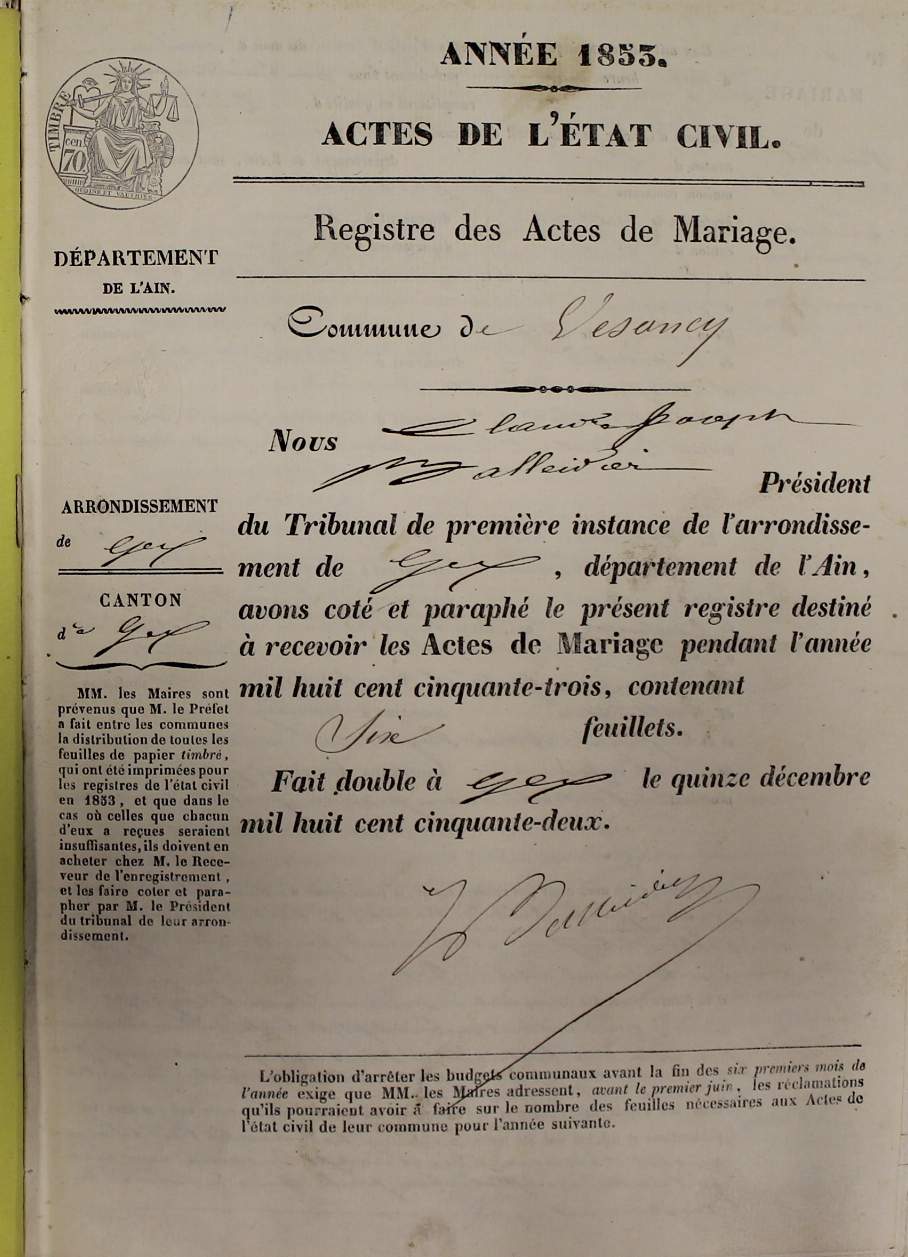 ANNÉE 1853.
ACTES DE L'ÉTAT CIVIL.
Registre des Actes de Mariage.
TIMBRE
70
cen
DÉPARTEMENT
DE L'AIN.
Commune de Vesancy
Nous Claude Joseph
Président
du Tribunal de première instance de l'arrondisse-
ment de Gex, département de l'Ain,
avons coté et paraphé le présent registre destiné
à recevoir les Actes de Mariage pendant l'année
mil huit cent cinquante-trois, contenant
Six feuillets.
Fait double à Gex le quinze décembre
mil huit cent cinquante-deux.
ARRONDISSEMENT
de Gex
CANTON
de Gex
MM. les Maires sont
prévenus que M. le Préfet
a fait entre les communes
la distribution de toutes les
feuilles de papier timbré,
qui ont été imprimées pour
les registres de l'état civil
en 1853, et que dans le
cas où celles que chacun
d'eux a reçues seraient
insuffisantes, ils doivent en
acheter chez M. le Rece-
veur de l'enregistrement,
et les faire coter et para-
pher par M. le Président
du tribunal de leur arron-
dissement.
L'obligation d'arrêter les budgets communaux avant la fin des six premiers mois de
l'année exige que MM. les Maires adressent, avant le premier juin, les réclamations
qu'ils pourraient avoir à faire sur le nombre des feuilles nécessaires aux Actes de
l'état civil de leur commune pour l'année suivante.